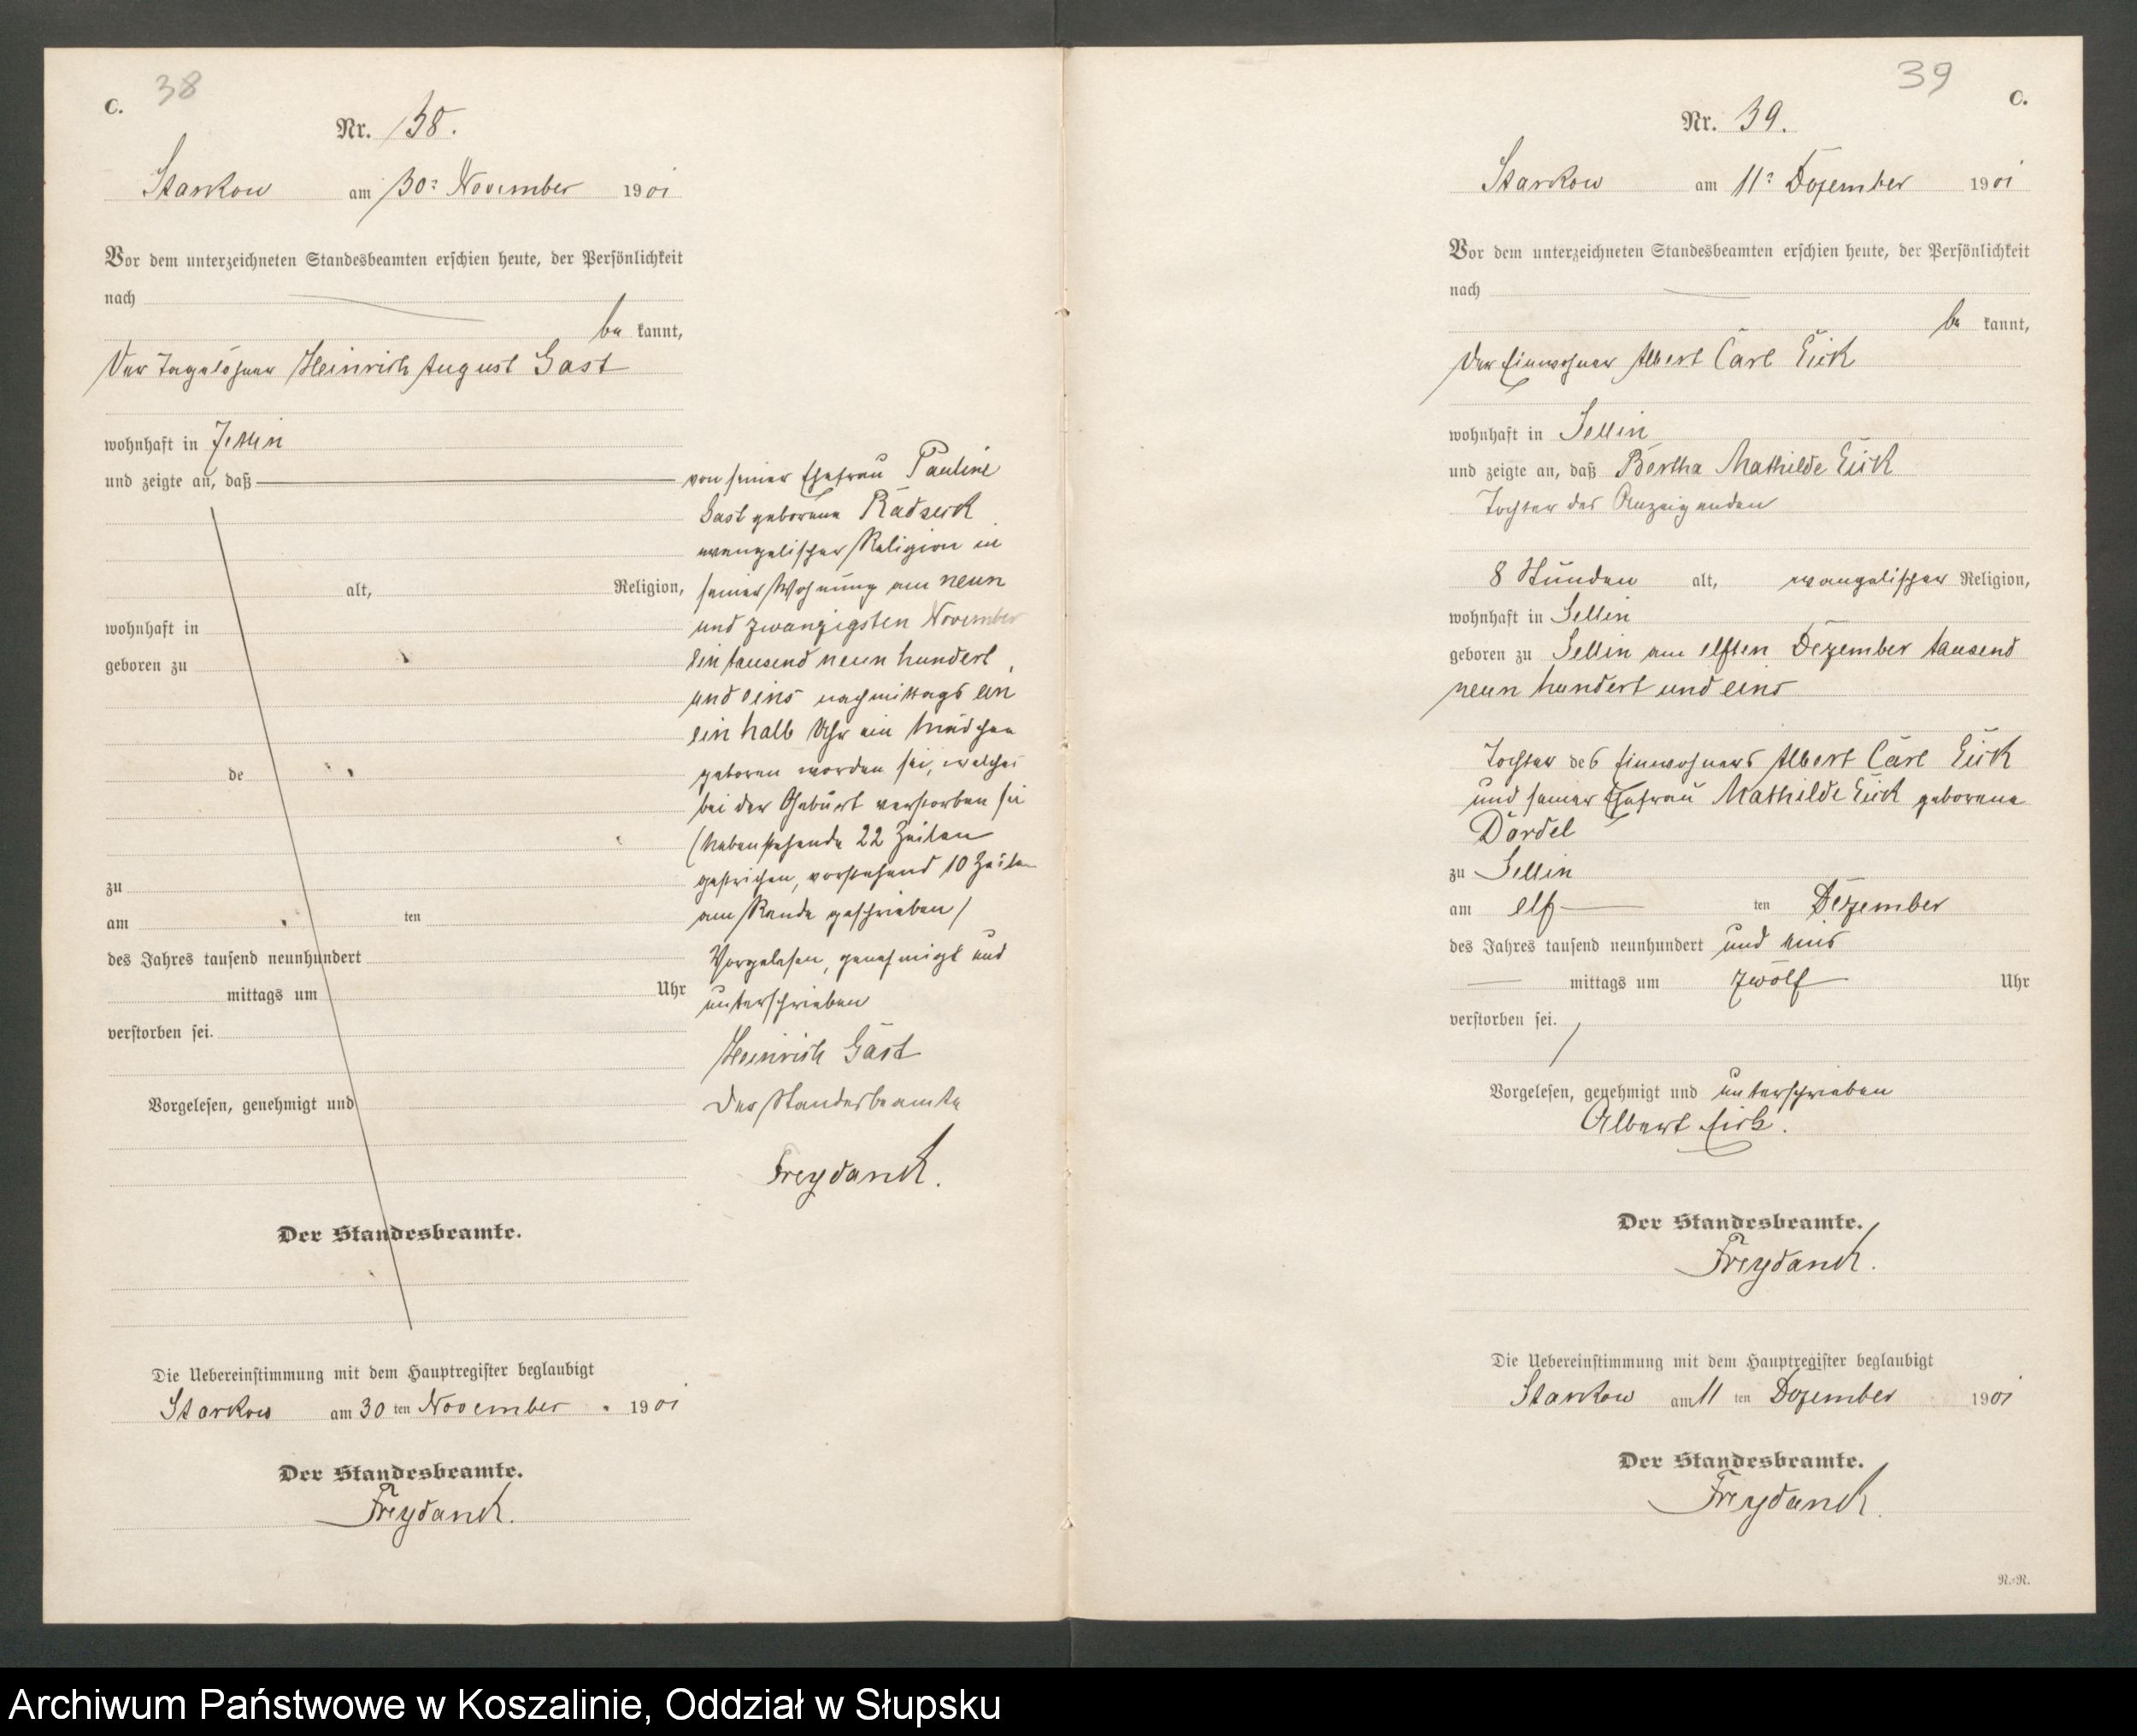 C. 38
Nr. 38.
Starkow am 30ⁿ November 1901
Vor dem unterzeichneten Standesbeamten erschien heute, der Persönlichkeit
nach
be kannt,
Der Tagelöhner Heinrich August Gast
wohnhaft in Jesslin
und zeigte an, daß
alt, Religion,
wohnhaft in
geboren zu
de
zu
am ten
des Jahres tausend neunhundert
mittags um Uhr
verstorben sei.
Vorgelesen, genehmigt und
Der Standesbeamte.
von seiner Ehefrau Pauline
Gast geborene Radseck
evangelischer Religion in
seiner Wohnung am neun
und zwanzigsten November
ein tausend neun hundert
und eins nachmittags ein
ein halb Uhr ein Mädchen
geboren worden sei, welches
bei der Geburt verstorben sei
(Nebenstehende 22 Zeilen
gestrichen, vorstehend 10 Zeilen
am Rande geschrieben)
Vorgelesen, genehmigt und
unterschrieben
Heinrich Gast
Der Standesbeamte
Freydanck.
Die Uebereinstimmung mit dem Hauptregister beglaubigt
Starkow am 30 ten November 1901
Der Standesbeamte.
Freydanck.
39 C.
Nr. 39.
Starkow am 11ⁿ Dezember 1901
Vor dem unterzeichneten Standesbeamten erschien heute, der Persönlichkeit
nach
be kannt,
Der Einwohner Albert Carl Eick
wohnhaft in Sellin
und zeigte an, daß Bertha Mathilde Eick
Tochter des Anzeigenden
8 Stunden alt, evangelischer Religion,
wohnhaft in Sellin
geboren zu Sellin am elften Dezember tausend
neun hundert und eins
Tochter des Einwohners Albert Carl Eick
und seiner Ehefrau Mathilde Eick geborene
Dardel
zu Sellin
am elf ten Dezember
des Jahres tausend neunhundert und eins
mittags um zwölf Uhr
verstorben sei.
Vorgelesen, genehmigt und unterschrieben
Albert Eick.
Der Standesbeamte.
Freydanck.
Die Uebereinstimmung mit dem Hauptregister beglaubigt
Starkow am 11 ten Dezember 1901
Der Standesbeamte.
Freydanck.
N.-N.
Archiwum Państwowe w Koszalinie, Oddział w Słupsku